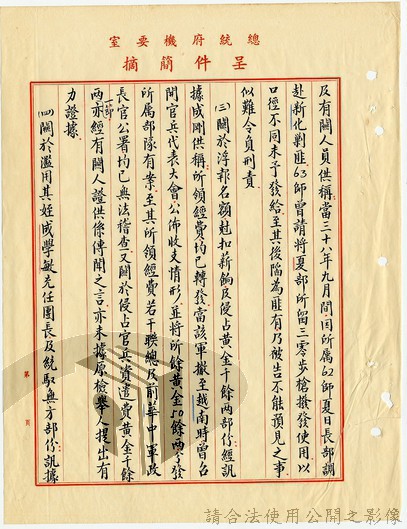 總統府機要室
呈件簡摘
及有關人員供稱當三十八年九月間因所属62師夏日長部調
赴新化剿匪63師曾請將夏部所留三零步槍撥發使用以
口徑不同未予發給至其後陷為匪有乃被告不能預見之事
似難令負刑責
(三)關於浮報名額尅扣薪餉及侵占黃金千餘两部份經訊
據成剛供稱所領經費均已轉發當該軍撤至越南時曾召
開官兵代表大會公佈收支情形並将所餘黃金50餘两予發
所属部隊有案至其所領經費若干聯總及前華中軍政
長官公署均已無法稽查又關於侵占官兵資遣費黃金千餘
两一節亦經有關人證供係傳聞之言亦未據原檢舉人提出有
力證據
(四)關於濫用其姪成學敏充任團長及統馭無方部份訊據
第 頁
請合法使用公開之影像